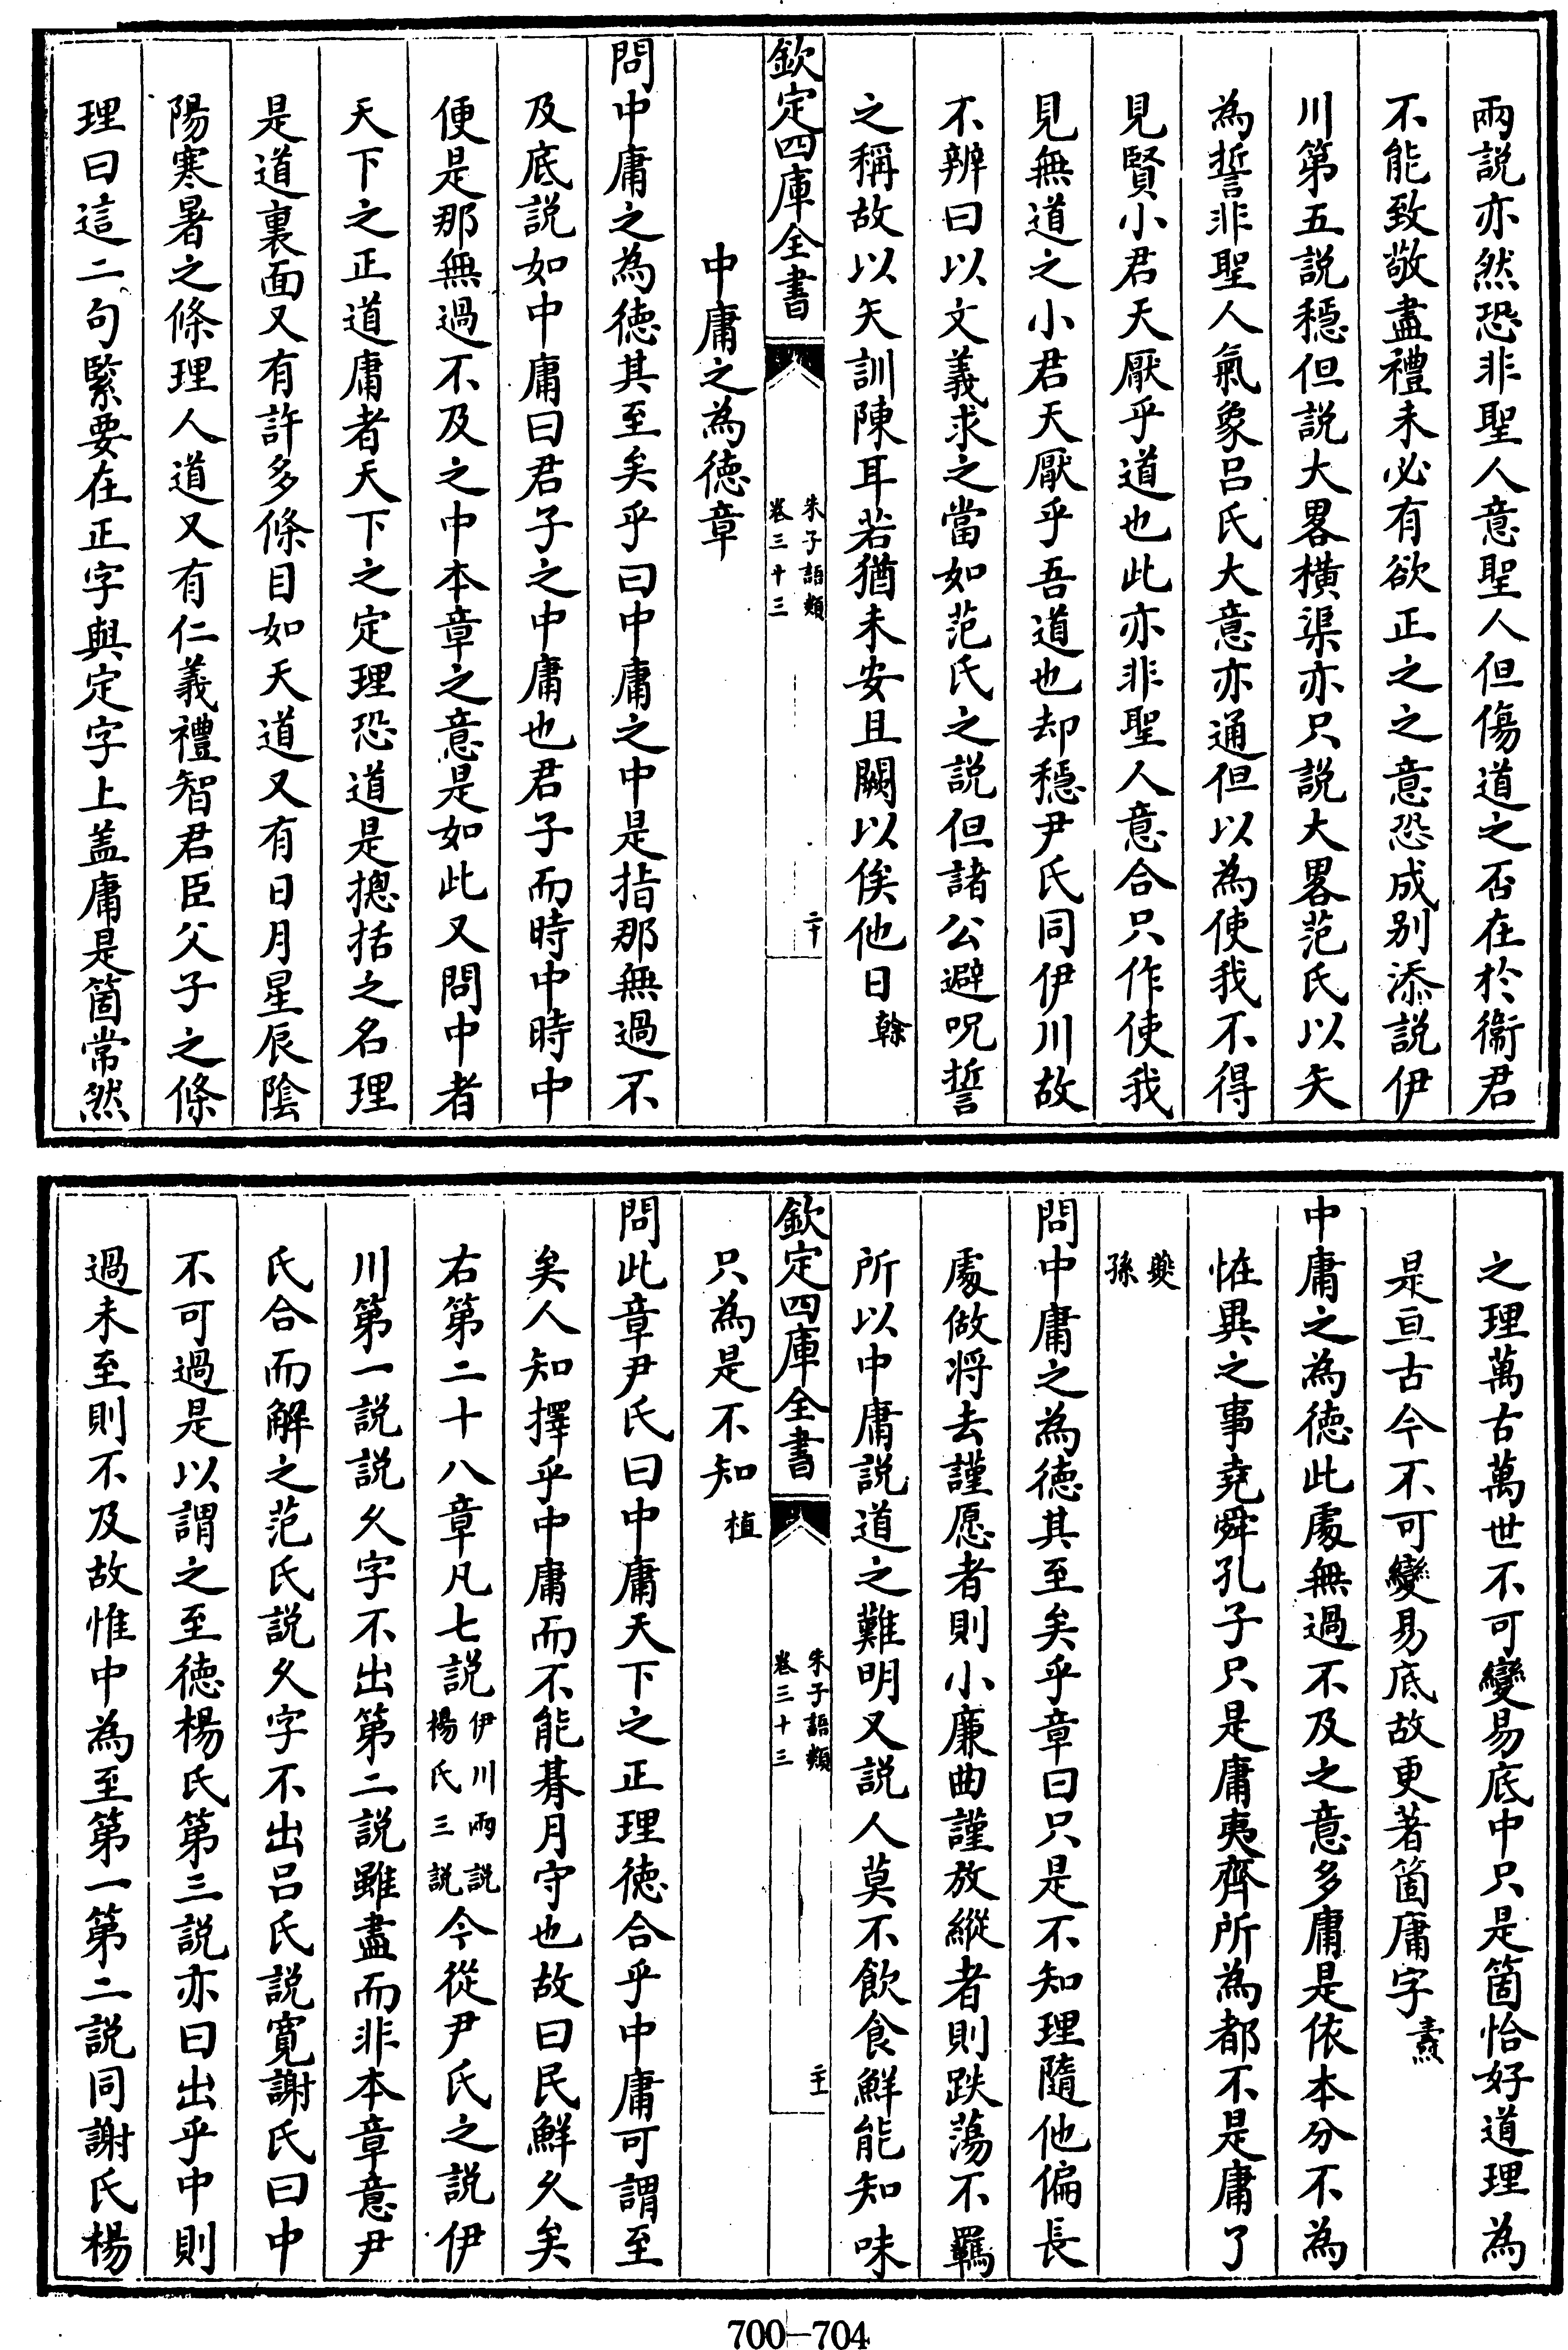 兩説亦然恐非聖人意聖人但傷道之否在於衞君
不能致敬盡禮未必有欲正之之意恐成别添説伊
川第五説穩但説大畧横渠亦只説大畧范氏以矢
為誓非聖人氣象吕氏大意亦通但以為使我不得
見賢小君天厭乎道也此亦非聖人意合只作使我
見無道之小君天厭乎吾道也却穩尹氏同伊川故
不辨曰以文義求之當如范氏之説但諸公避呪誓
之稱故以矢訓陳耳若猶未安且闕以俟他日榦
欽定四庫全書
朱子語類
卷三十三
二十
中庸之為徳章
問中庸之為徳其至矣乎曰中庸之中是指那無過不
及底説如中庸曰君子之中庸也君子而時中時中
便是那無過不及之中本章之意是如此又問中者
天下之正道庸者天下之定理恐道是摠括之名理
是道裏面又有許多條目如天道又有日月星辰陰
陽寒暑之條理人道又有仁義禮智君臣父子之條
理曰這二句緊要在正字與定字上盖庸是箇常然
之理萬古萬世不可變易底中只是箇恰好道理為
是亘古今不可變易底故更著箇庸字燾
中庸之為徳此處無過不及之意多庸是依本分不為
怪異之事堯舜孔子只是庸夷齊所為都不是庸了
夔
孫
問中庸之為徳其至矣乎章曰只是不知理隨他偏長
處做将去謹愿者則小亷曲謹放縱者則跌蕩不羈
所以中庸説道之難明又説人莫不飲食鮮能知味
欽定四庫全書
朱子語類
卷三十三
二十一
只為是不知植
問此章尹氏曰中庸天下之正理徳合乎中庸可謂至
矣人知擇乎中庸而不能朞月守也故曰民鮮久矣
右第二十八章凡七説伊川兩説楊氏三説今從尹氏之説伊
川第一説説久字不出第二説雖盡而非本章意尹
氏合而解之范氏説久字不出吕氏説寛謝氏曰中
不可過是以謂之至徳楊氏第三説亦曰出乎中則
過未至則不及故惟中為至第一第二説同謝氏楊
700-704